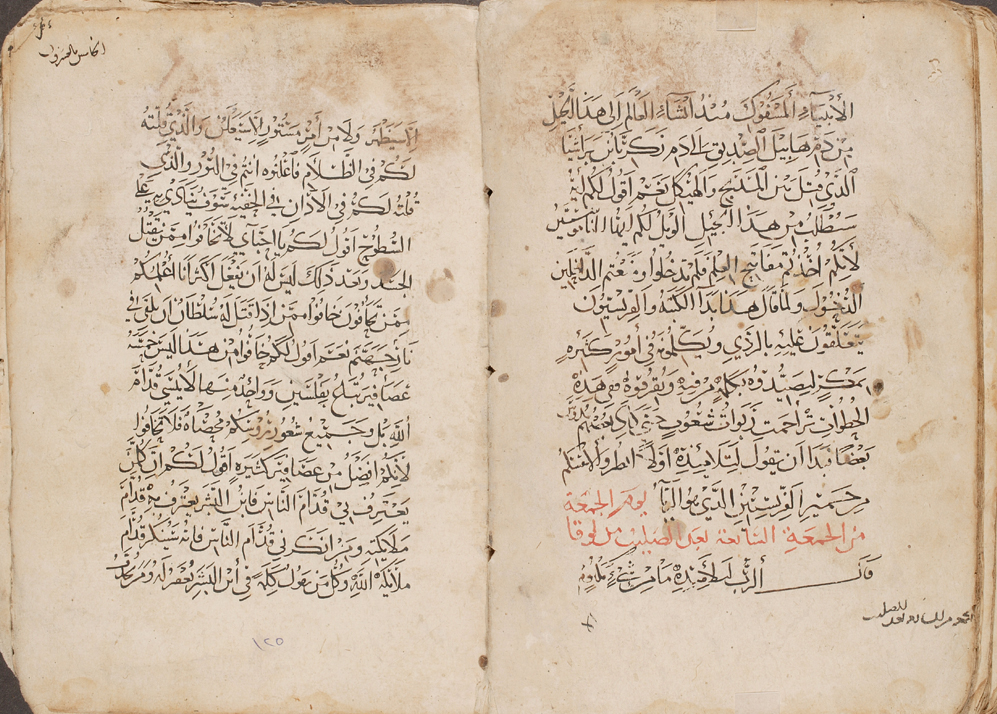 الأنبياء المسفوك منذ انشاء العالم الى هذا الجيل
من دم هابيل الصديق الى دم زكريا بن براشيا
الذي قتل بين المذبح والهيكل نعم اقول لكم انه
سيطلب من هذا الجيل الويل لكم ايها الناموسيين
لانكم اخذتم مفاتيح العلم فلم تدخلوا ومنعتم الداخلين
الدخول ولما قال هذا بدا الكتبة والفريسيون
يتغلقون عليه بالرذي ويكلمونه في امور كثيرة
بمكر ليصيدوه بكلمة من فيه ويقرفوه وفي هذه
الخطوات تراحمت ربوات شعوب حتى كاد بعضهم
بعضا فبدا ان يقول لتلاميذه اولا انظروا لانفسكم
من خمير الفريسيين الذي هو الريا يوم الجمعة
من الجمعة السابعة بعد الصليب من لوقا
قال الرب لتلاميذه ما من شيء مكتوم
الجمعة من السابعة بعد الصليب
الخامس بالعنصرة
الا سيظهر ولا من امر مستور الا سيعلن والذي قلته
لكم في الظلام فاعلنوه انتم في النور والذي
قلته لكم في الاذان في الخفية سوف ينادي به على
السطوح اقول لكم يا احبآي لا تخافوا ممن يقتل
الجسد وبعد ذلك ليس له ان يفعل اكثر انا اعلمكم
ممن تخافون خافوا ممن اذا قتل له سلطان ان يلقي في
نار جهنم نعم اقول لكم خافوا من هذا اليس خمسة
عصافير تباع بفلسين وواحد منها لا ينسى قدام
الله بل وجميع شعور رؤسكم محصاة فلا تخافوا
لانكم افضل من عصافير كثيرة اقول لكم ان كل من
يعترف بي قدام الناس فابن البشر يعترف به قدام
ملائكته ومن انكرني قدام الناس فانه سينكر قدام
ملائكة الله وكل من يقول كلمة في ابن البشر يغفر له ومن
١٢٥